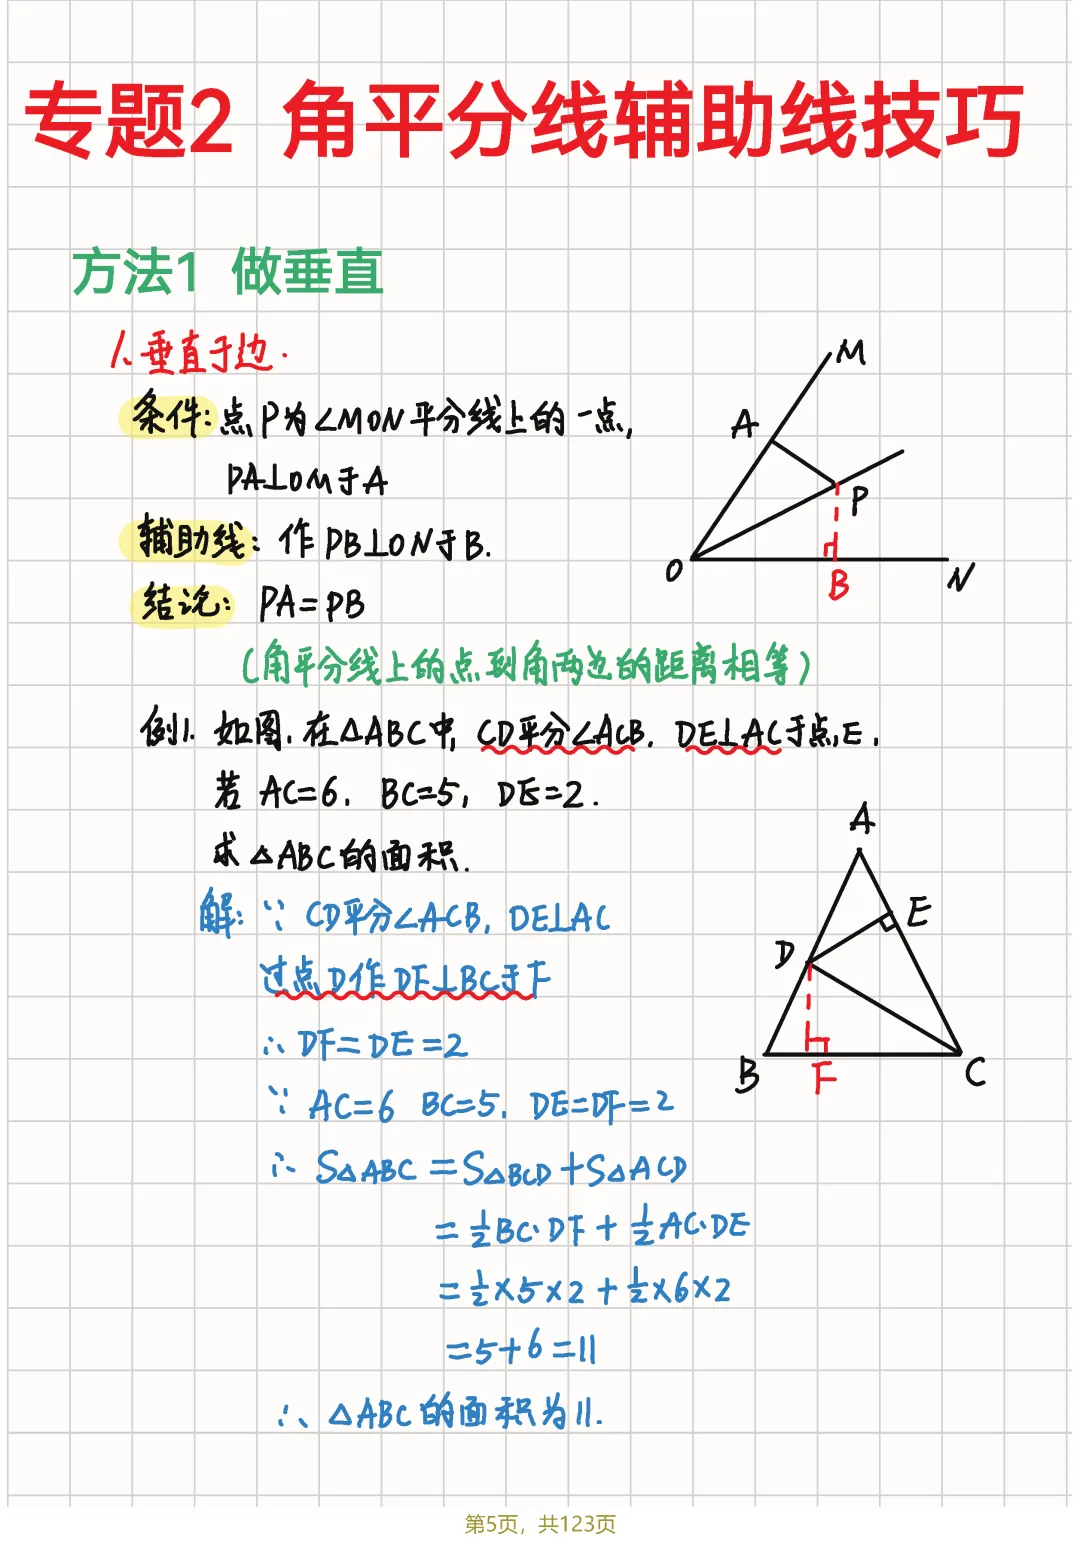 专题2 角平分线辅助线技巧
方法1 做垂直
1. 垂直于边.
条件: 点P为∠MON平分线上的一点,
PA⊥OM于A
辅助线: 作PB⊥ON于B.
结论: PA=PB
(角平分线上的点到角两边的距离相等)
M
A
P
O
B
N
例1. 如图, 在△ABC中, CD平分∠ACB, DE⊥AC于点E,
若 AC=6, BC=5, DE=2.
求△ABC的面积.
解: ∵ CD平分∠ACB, DE⊥AC
过点D作DF⊥BC于F
∴ DF=DE=2
∵ AC=6 BC=5, DE=DF=2
∴ S△ABC=S△BCD+S△ACD
=½BC·DF+½AC·DE
=½×5×2+½×6×2
=5+6=11
∴ △ABC的面积为11.
A
E
D
B
F
C
第5页，共123页